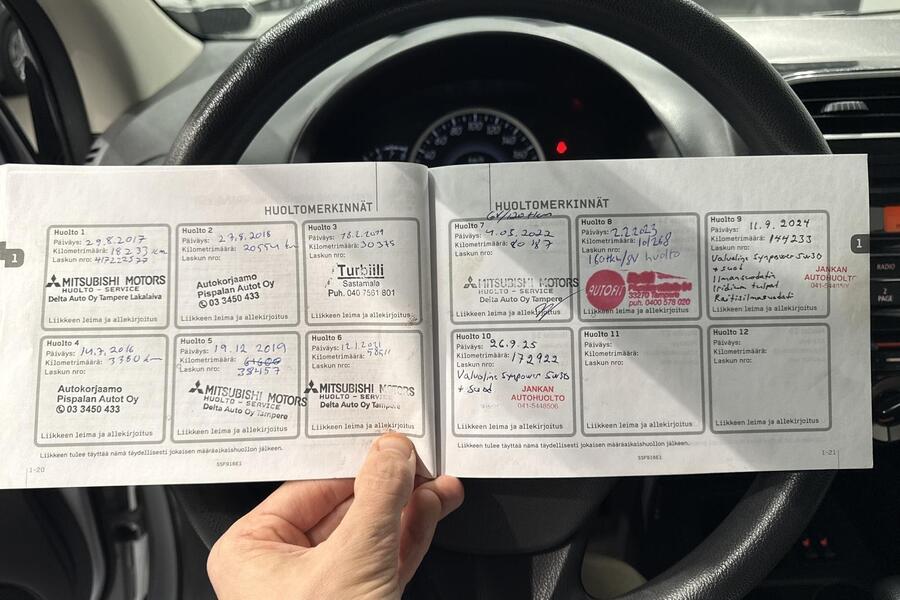 HUOLTOMERKINNÄT
1
Huolto 1
Päiväys: 29.8.2017
Kilometrimäärä: 18233 km
Laskun nro:
MITSUBISHI MOTORS
HUOLTO - SERVICE
Delta Auto Oy Tampere Lakalaiva
Liikkeen leima ja allekirjoitus
Huolto 2
Päiväys: 27.8.2018
Kilometrimäärä: 20554 km
Laskun nro:
Autokorjaamo
Pispalan Autot Oy
03 3450 433
Liikkeen leima ja allekirjoitus
Huolto 3
Päiväys: 18.2.2019
Kilometrimäärä: 30375
Laskun nro:
Turbiili
Sastamala
Puh. 040 7561 801
Liikkeen leima ja allekirjoitus
Huolto 4
Päiväys: 14.7.2016
Kilometrimäärä:
Laskun nro:
Autokorjaamo
Pispalan Autot Oy
03 3450 433
Liikkeen leima ja allekirjoitus
Huolto 5
Päiväys: 19.12.2019
Kilometrimäärä:
Laskun nro: 38457
MITSUBISHI MOTORS
HUOLTO - SERVICE
Delta Auto Oy Tampere
Liikkeen leima ja allekirjoitus
Huolto 6
Päiväys: 12.1.2021
Kilometrimäärä:
Laskun nro:
MITSUBISHI MOTORS
HUOLTO - SERVICE
Delta Auto Oy Tampere
Liikkeen leima ja allekirjoitus
Liikkeen tulee täyttää nämä täydellisesti jokaisen määräaikaishuollon jälkeen.
1-20
SSF918E1
HUOLTOMERKINNÄT
1
6V/120tkm
Huolto 7
Päiväys: 4.05.2022
Kilometrimäärä:
Laskun nro:
MITSUBISHI MOTORS
HUOLTO - SERVICE
Delta Auto Oy Tampere
Liikkeen leima ja allekirjoitus
Huolto 8
Päiväys: 2.2.2023
Kilometrimäärä: 101268
Laskun nro:
160tkm/8V huolto
AUTOFIT
33270 Tampere
puh. 0400 578 020
Liikkeen leima ja allekirjoitus
Huolto 9
Päiväys: 11.9.2024
Kilometrimäärä: 144233
Laskun nro:
Valvoline Synpower 5W30
+ suod
Ilmansuodatin
Iridium tulpat
Raitisilmasuodati
JANKAN
AUTOHUOLTO
Huolto 10
Päiväys: 26.9.25
Kilometrimäärä: 172922
Laskun nro:
Valvoline Synpower 5W30
+ suod
JANKAN
AUTOHUOLTO
041-5448506
Liikkeen leima ja allekirjoitus
Huolto 11
Päiväys:
Kilometrimäärä:
Laskun nro:
Liikkeen leima ja allekirjoitus
Huolto 12
Päiväys:
Kilometrimäärä:
Laskun nro:
Liikkeen leima ja allekirjoitus
Liikkeen tulee täyttää nämä täydellisesti jokaisen määräaikaishuollon jälkeen.
SSF918E1
1-21
RADIO
2
PAGE